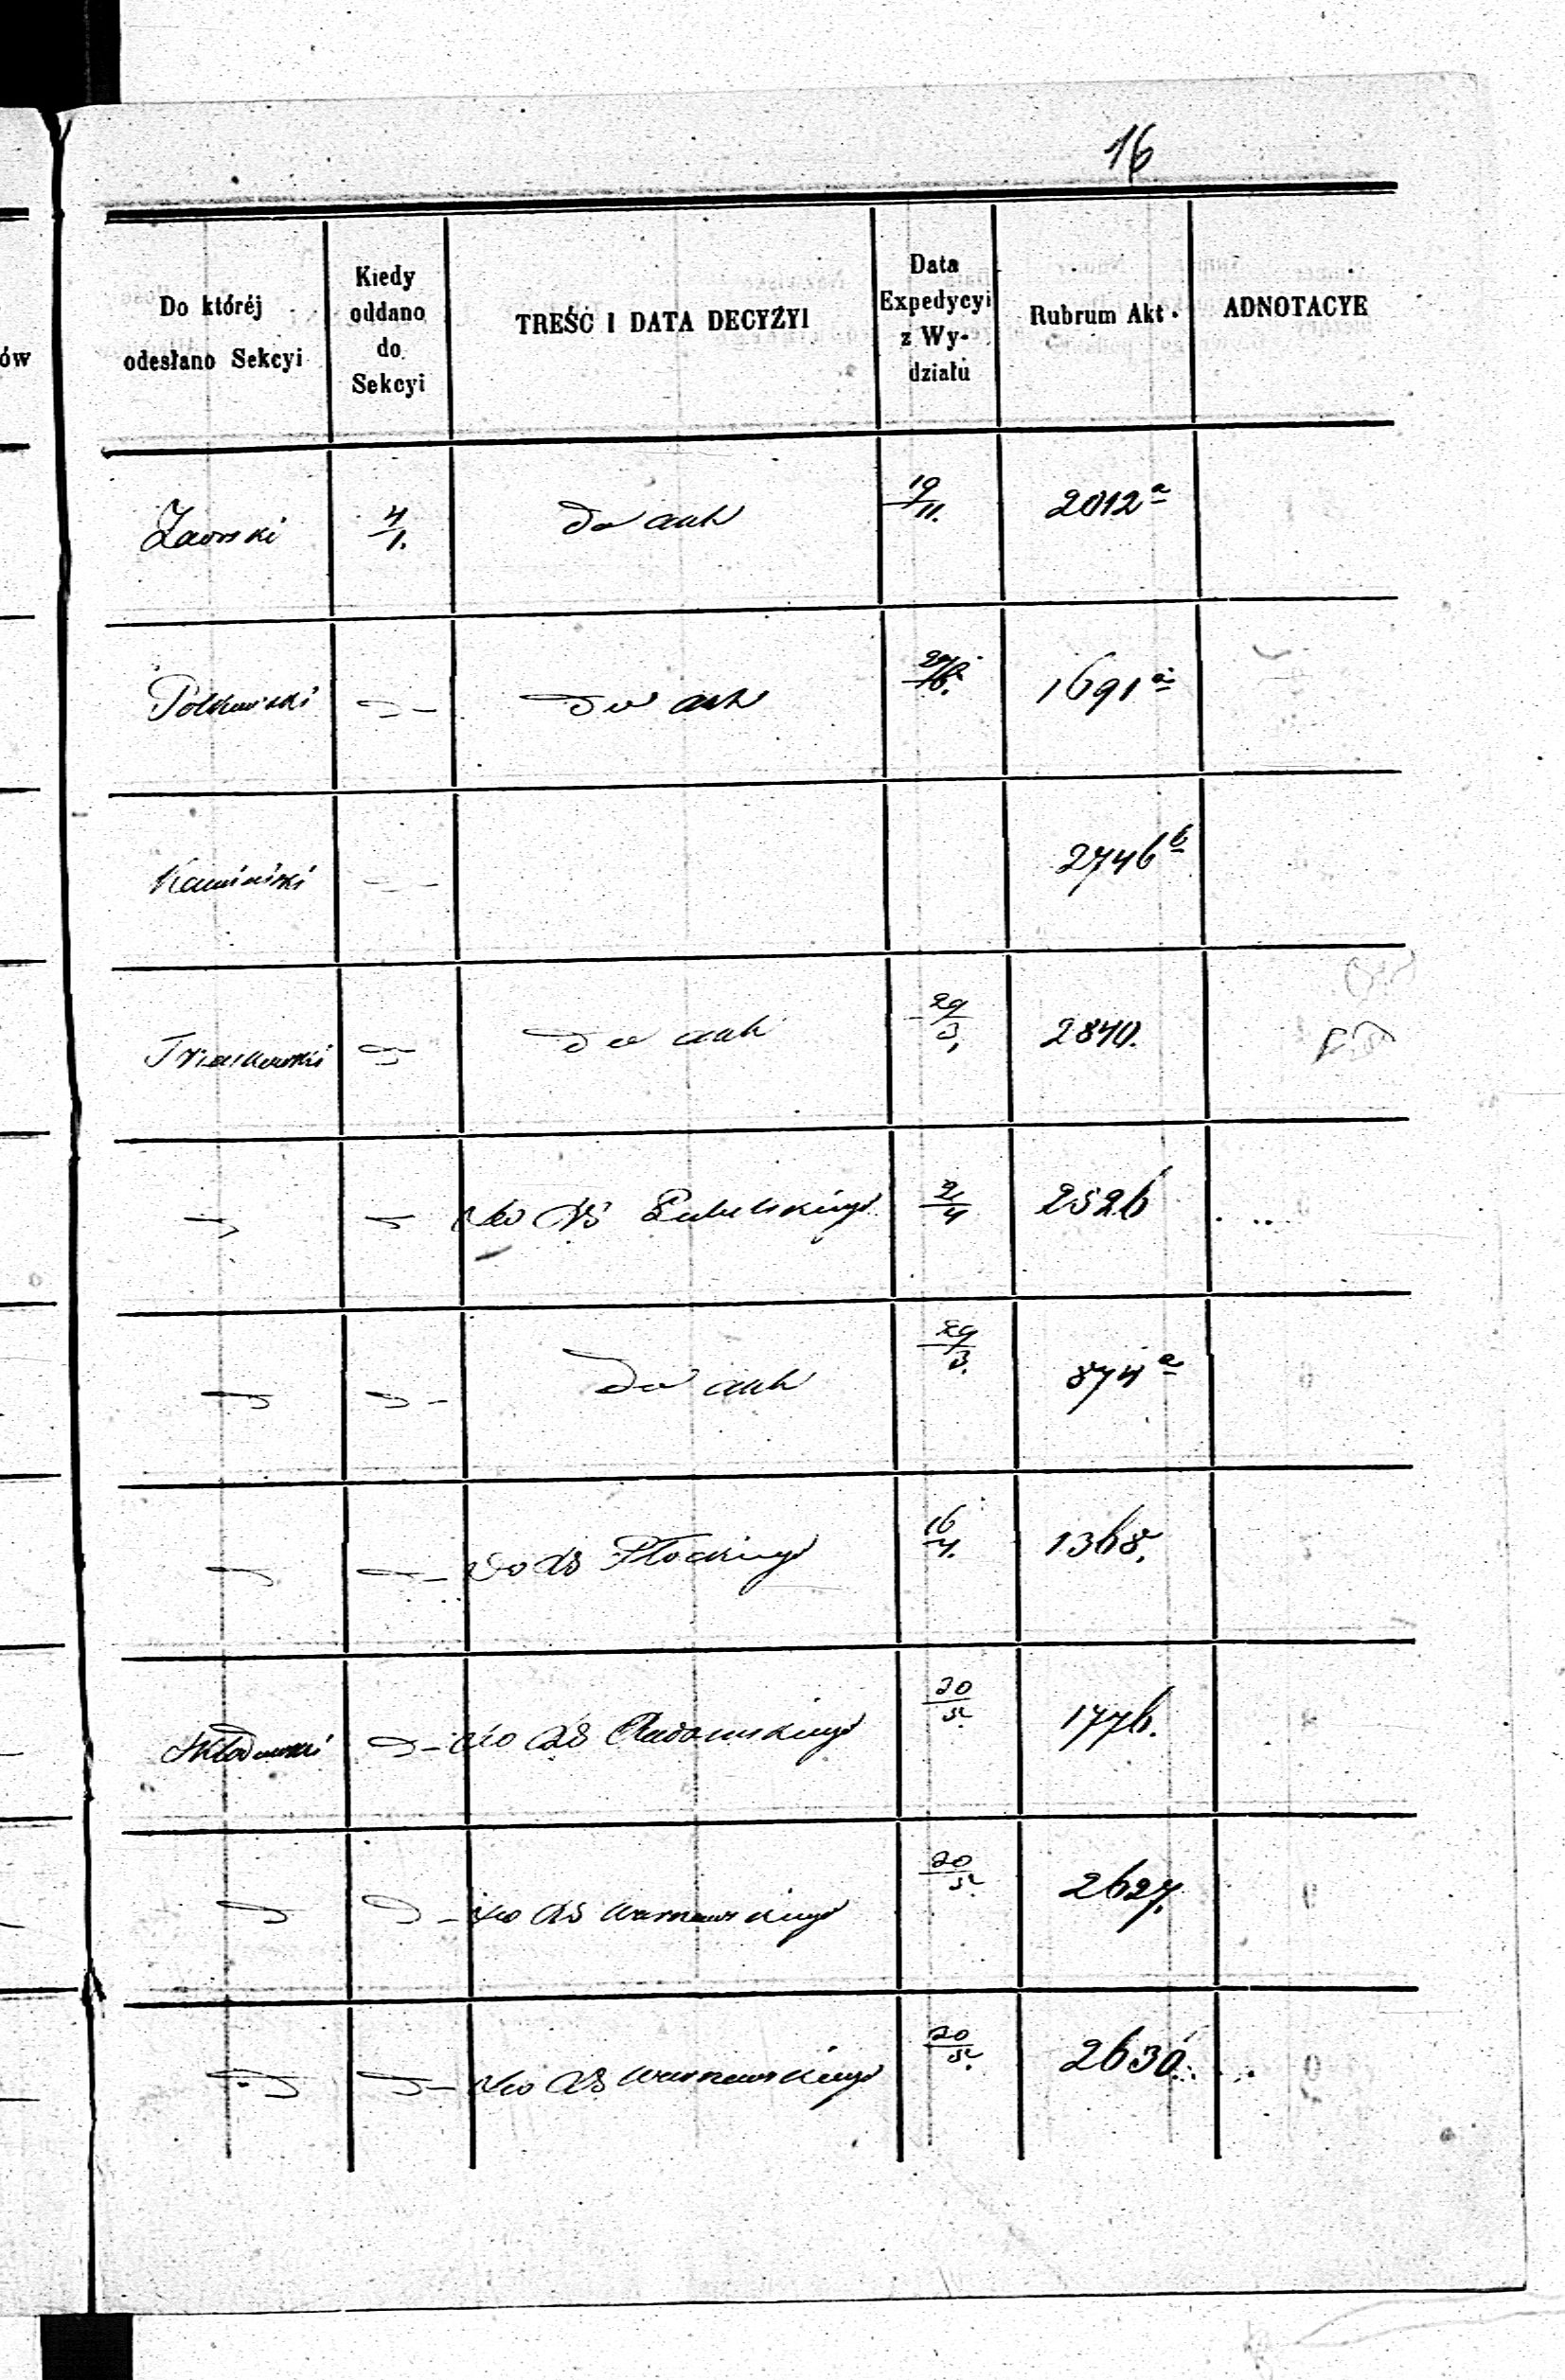 16
ów
Do któréj odesłano Sekcyi | Kiedy oddano do Sekcyi | TREŚĆ I DATA DECYZYI | Data Expedycyi z Wydziału | Rubrum Akt. | ADNOTACYE
Zaorski | 4/1. | do akt | 19/11. | 2012 a
do akt | 1691 a
Kamiński | 2746 b
do akt | 29/3, | 2840.
do Lubelskiego | 2/4 | 2526
do akt | 29/3. | 874 a
do Płockiego | 16/4. | 1368.
Skłodowski | do Radomskiego | 20/5. | 1776.
do Warszawskiego | 20/5. | 2627.
do Warszawskiego | 20/5. | 2630.